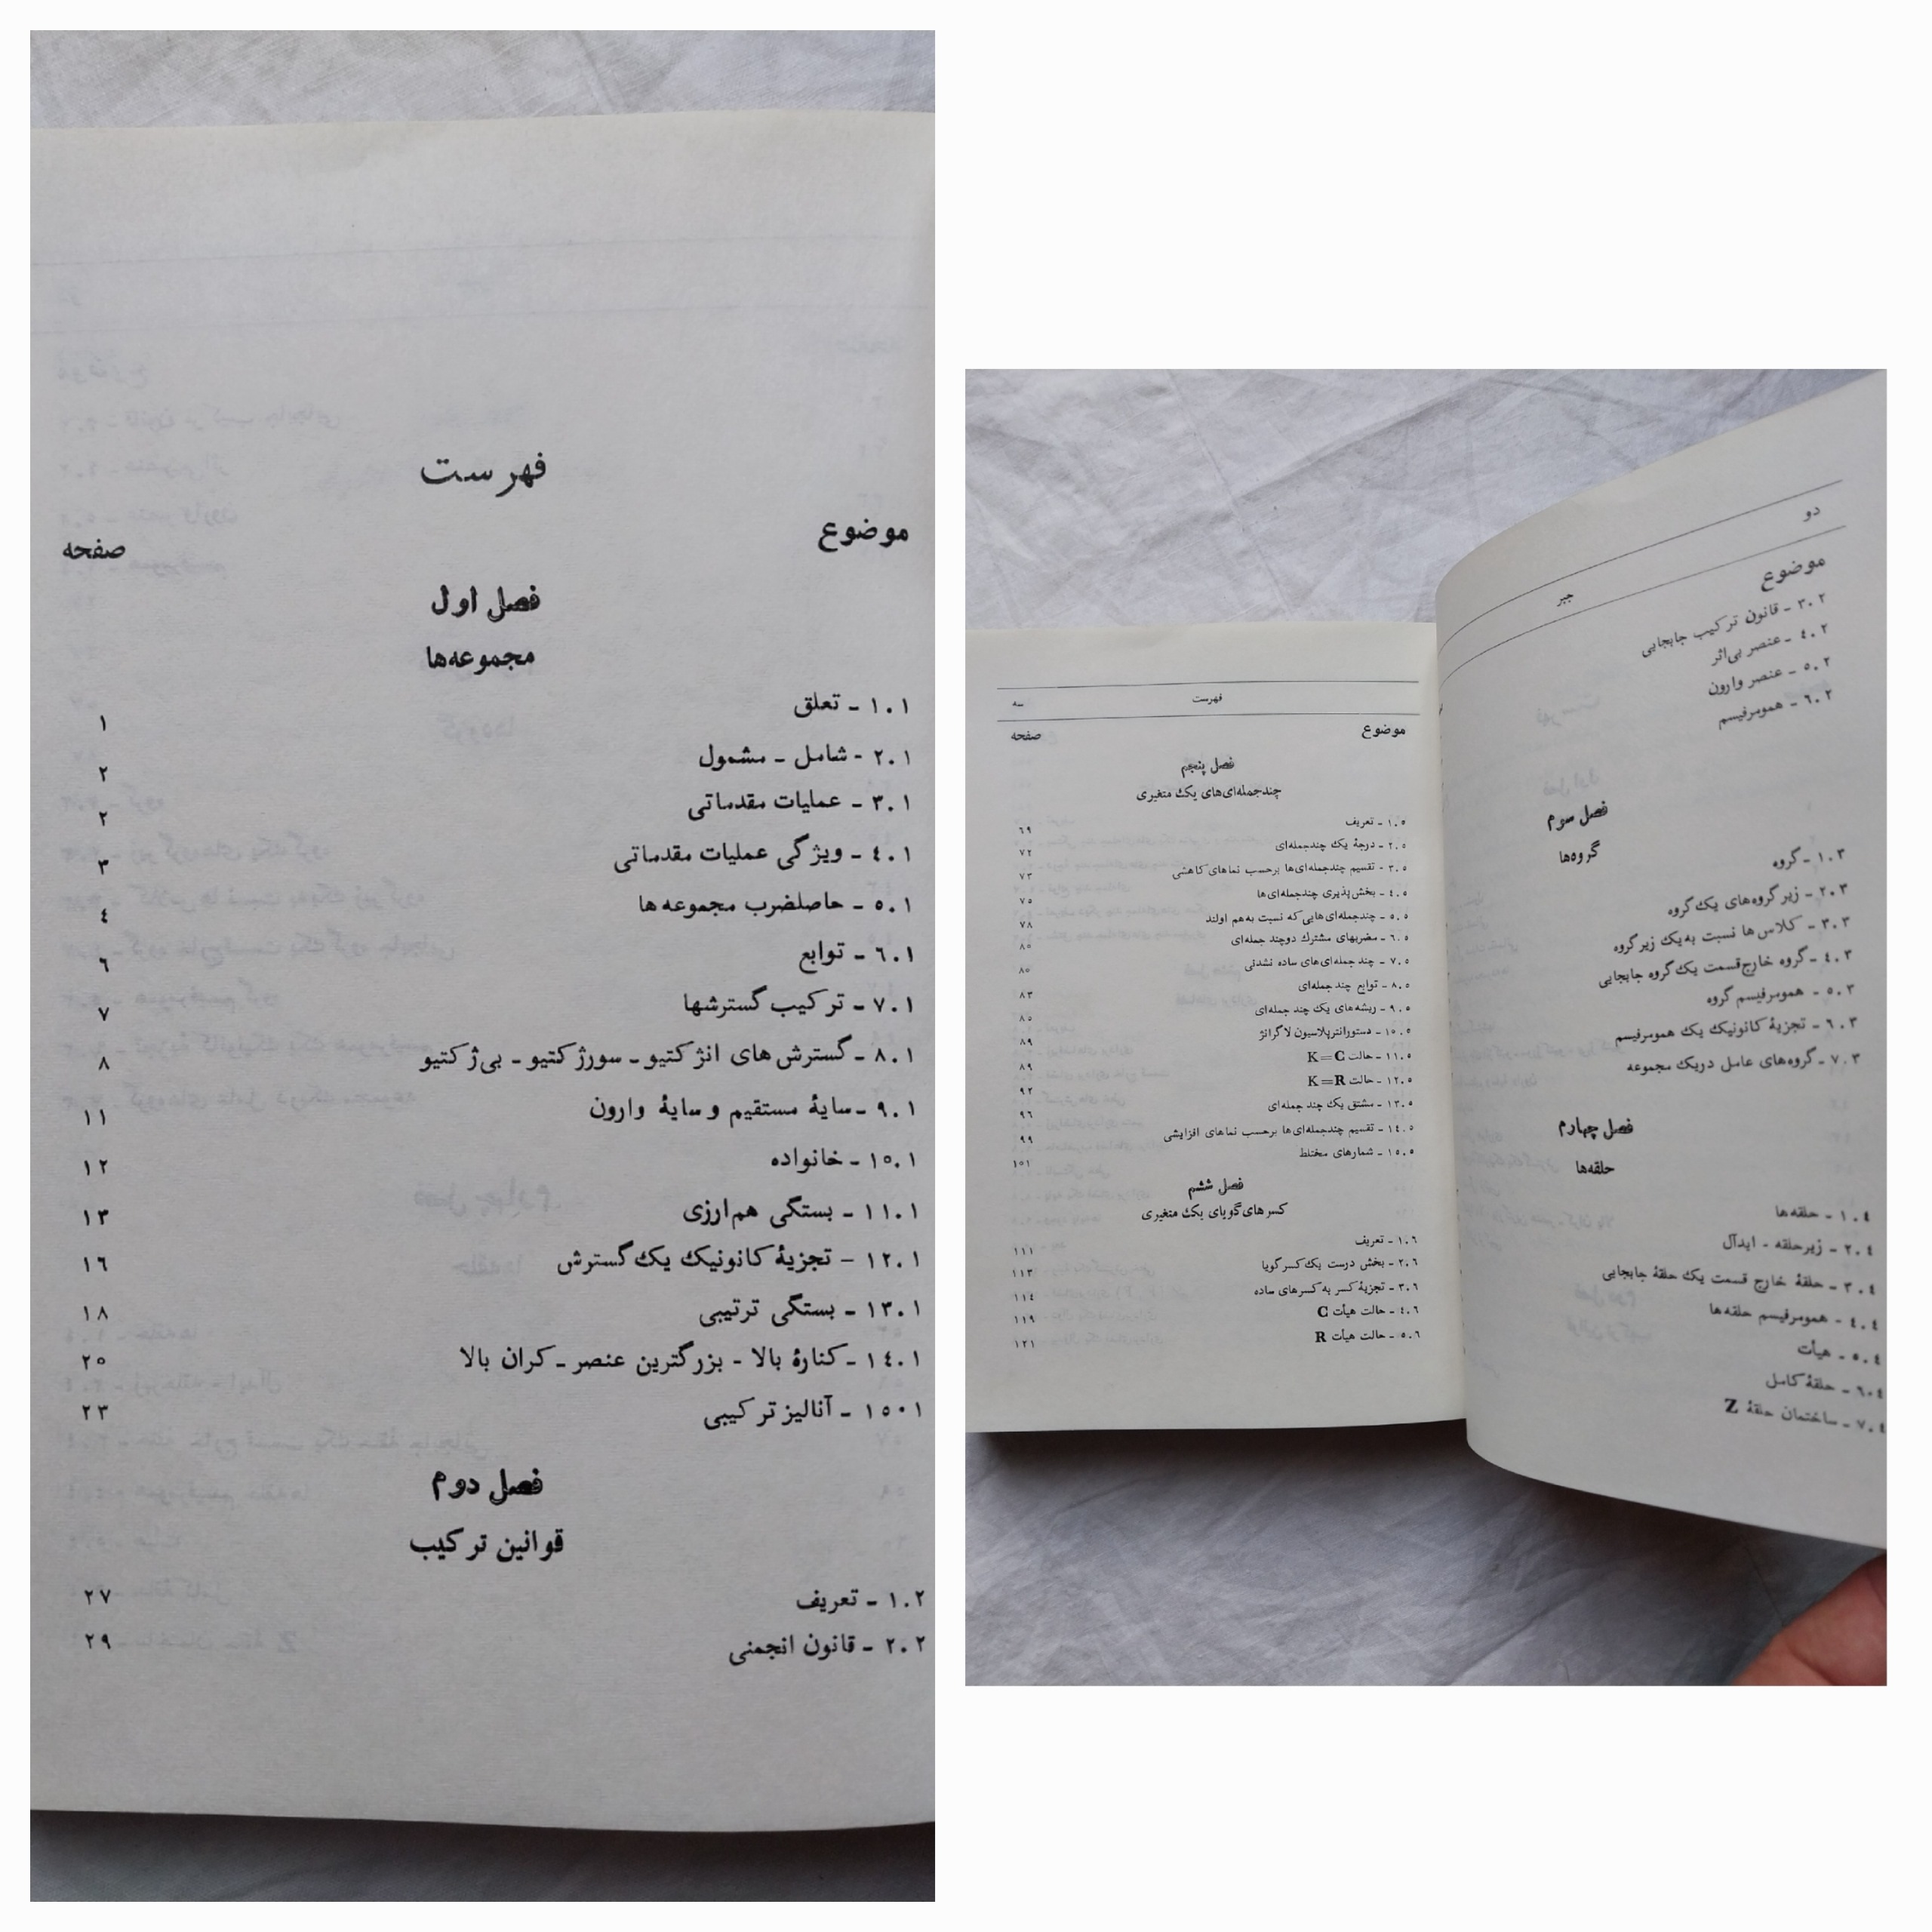 فهرست
موضوع
صفحه
فصل اول
مجموعه‌ها
۱.۱ - تعلق ۱
۲.۱ - شامل - مشمول ۲
۳.۱ - عملیات مقدماتی ۲
۴.۱ - ویژگی عملیات مقدماتی ۳
۵.۱ - حاصلضرب مجموعه‌ها ۴
۶.۱ - توابع ۶
۷.۱ - ترکیب گسترشها ۷
۸.۱ - گسترش‌های انژکتیو - سورژکتیو - بی‌ژکتیو ۸
۹.۱ - سایهٔ مستقیم و سایهٔ وارون ۱۱
۱۰.۱ - خانواده ۱۲
۱۱.۱ - بستگی هم‌ارزی ۱۳
۱۲.۱ - تجزیهٔ کانونیک یک گسترش ۱۶
۱۳.۱ - بستگی ترتیبی ۱۸
۱۴.۱ - کنارهٔ بالا - بزرگترین عنصر - کران بالا ۲۰
۱۵۰۱ - آنالیز ترکیبی ۲۳
فصل دوم
قوانین ترکیب
۱.۲ - تعریف ۲۷
۲.۲ - قانون انجمنی ۲۹
دو
جبر
موضوع
۳.۲ - قانون ترکیب جابجایی
۴.۲ - عنصر بی‌اثر
۵.۲ - عنصر وارون
۶.۲ - همومرفیسم
فصل سوم
گروه‌ها
۱.۳ - گروه
۲.۳ - زیر گروه‌های یک گروه
۳.۳ - کلاس‌ها نسبت به یک زیر گروه
۴.۳ - گروه خارج‌قسمت یک گروه جابجایی
۵.۳ - همومرفیسم گروه
۶.۳ - تجزیهٔ کانونیک یک همومرفیسم
۷.۳ - گروه‌های عامل در یک مجموعه
فصل چهارم
حلقه‌ها
۱.۴ - حلقه‌ها
۲.۴ - زیرحلقه - ایدآل
۳.۴ - حلقهٔ خارج قسمت یک حلقهٔ جابجایی
۴.۴ - همومرفیسم حلقه‌ها
۵.۴ - هیأت
۶.۴ - حلقهٔ کامل
۷.۴ - ساختمان حلقهٔ Z
فهرست
سه
موضوع
صفحه
فصل پنجم
چندجمله‌ای‌های یک متغیری
۱.۵ - تعریف ۶۹
۲.۵ - درجهٔ یک چندجمله‌ای ۷۲
۳.۵ - تقسیم چندجمله‌ای‌ها برحسب نماهای کاهشی ۷۳
۴.۵ - بخش‌پذیری چندجمله‌ای‌ها ۷۵
۵.۵ - چندجمله‌ای‌هایی که نسبت به‌هم اولند ۷۸
۶.۵ - مضربهای مشترک دوچند جمله‌ای ۸۰
۷.۵ - چند جمله‌ای‌های ساده نشدنی ۸۰
۸.۵ - توابع چند جمله‌ای ۸۳
۹.۵ - ریشه‌های یک چند جمله‌ای ۸۵
۱۰.۵ - دستورانترپلاسیون لاگرانژ ۸۹
۱۱.۵ - حالت K=C ۸۹
۱۲.۵ - حالت K=R ۹۲
۱۳.۵ - مشتق یک چند جمله‌ای ۹۶
۱۴.۵ - تقسیم چندجمله‌ای‌ها برحسب نماهای افزایشی ۹۹
۱۵.۵ - شمارهای مختلط ۱۰۱
فصل ششم
کسرهای گویای یک متغیری
۱.۶ - تعریف ۱۱۱
۲.۶ - بخش درست یک کسر گویا ۱۱۳
۳.۶ - تجزیهٔ کسر به کسرهای ساده ۱۱۴
۴.۶ - حالت هیأت C ۱۱۹
۵.۶ - حالت هیأت R ۱۲۱